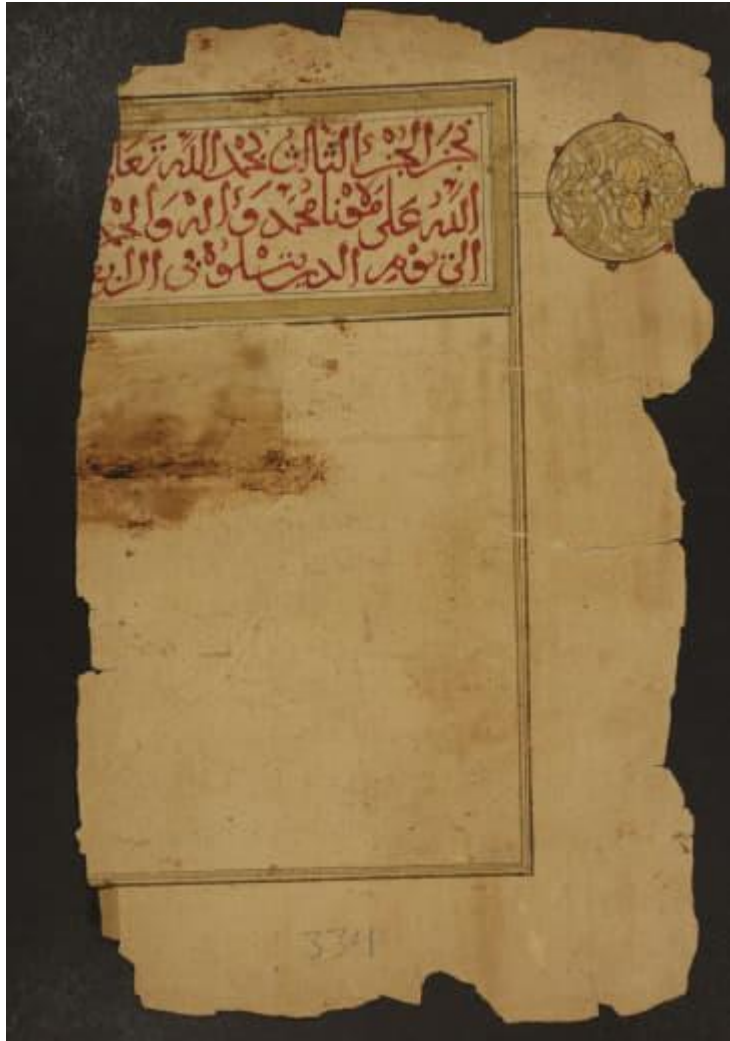 نجز الجزء الثالث بحمد الله تعا
الله على محمد وآله والحمد
الى يوم الدين يتلوه في الرابع
334